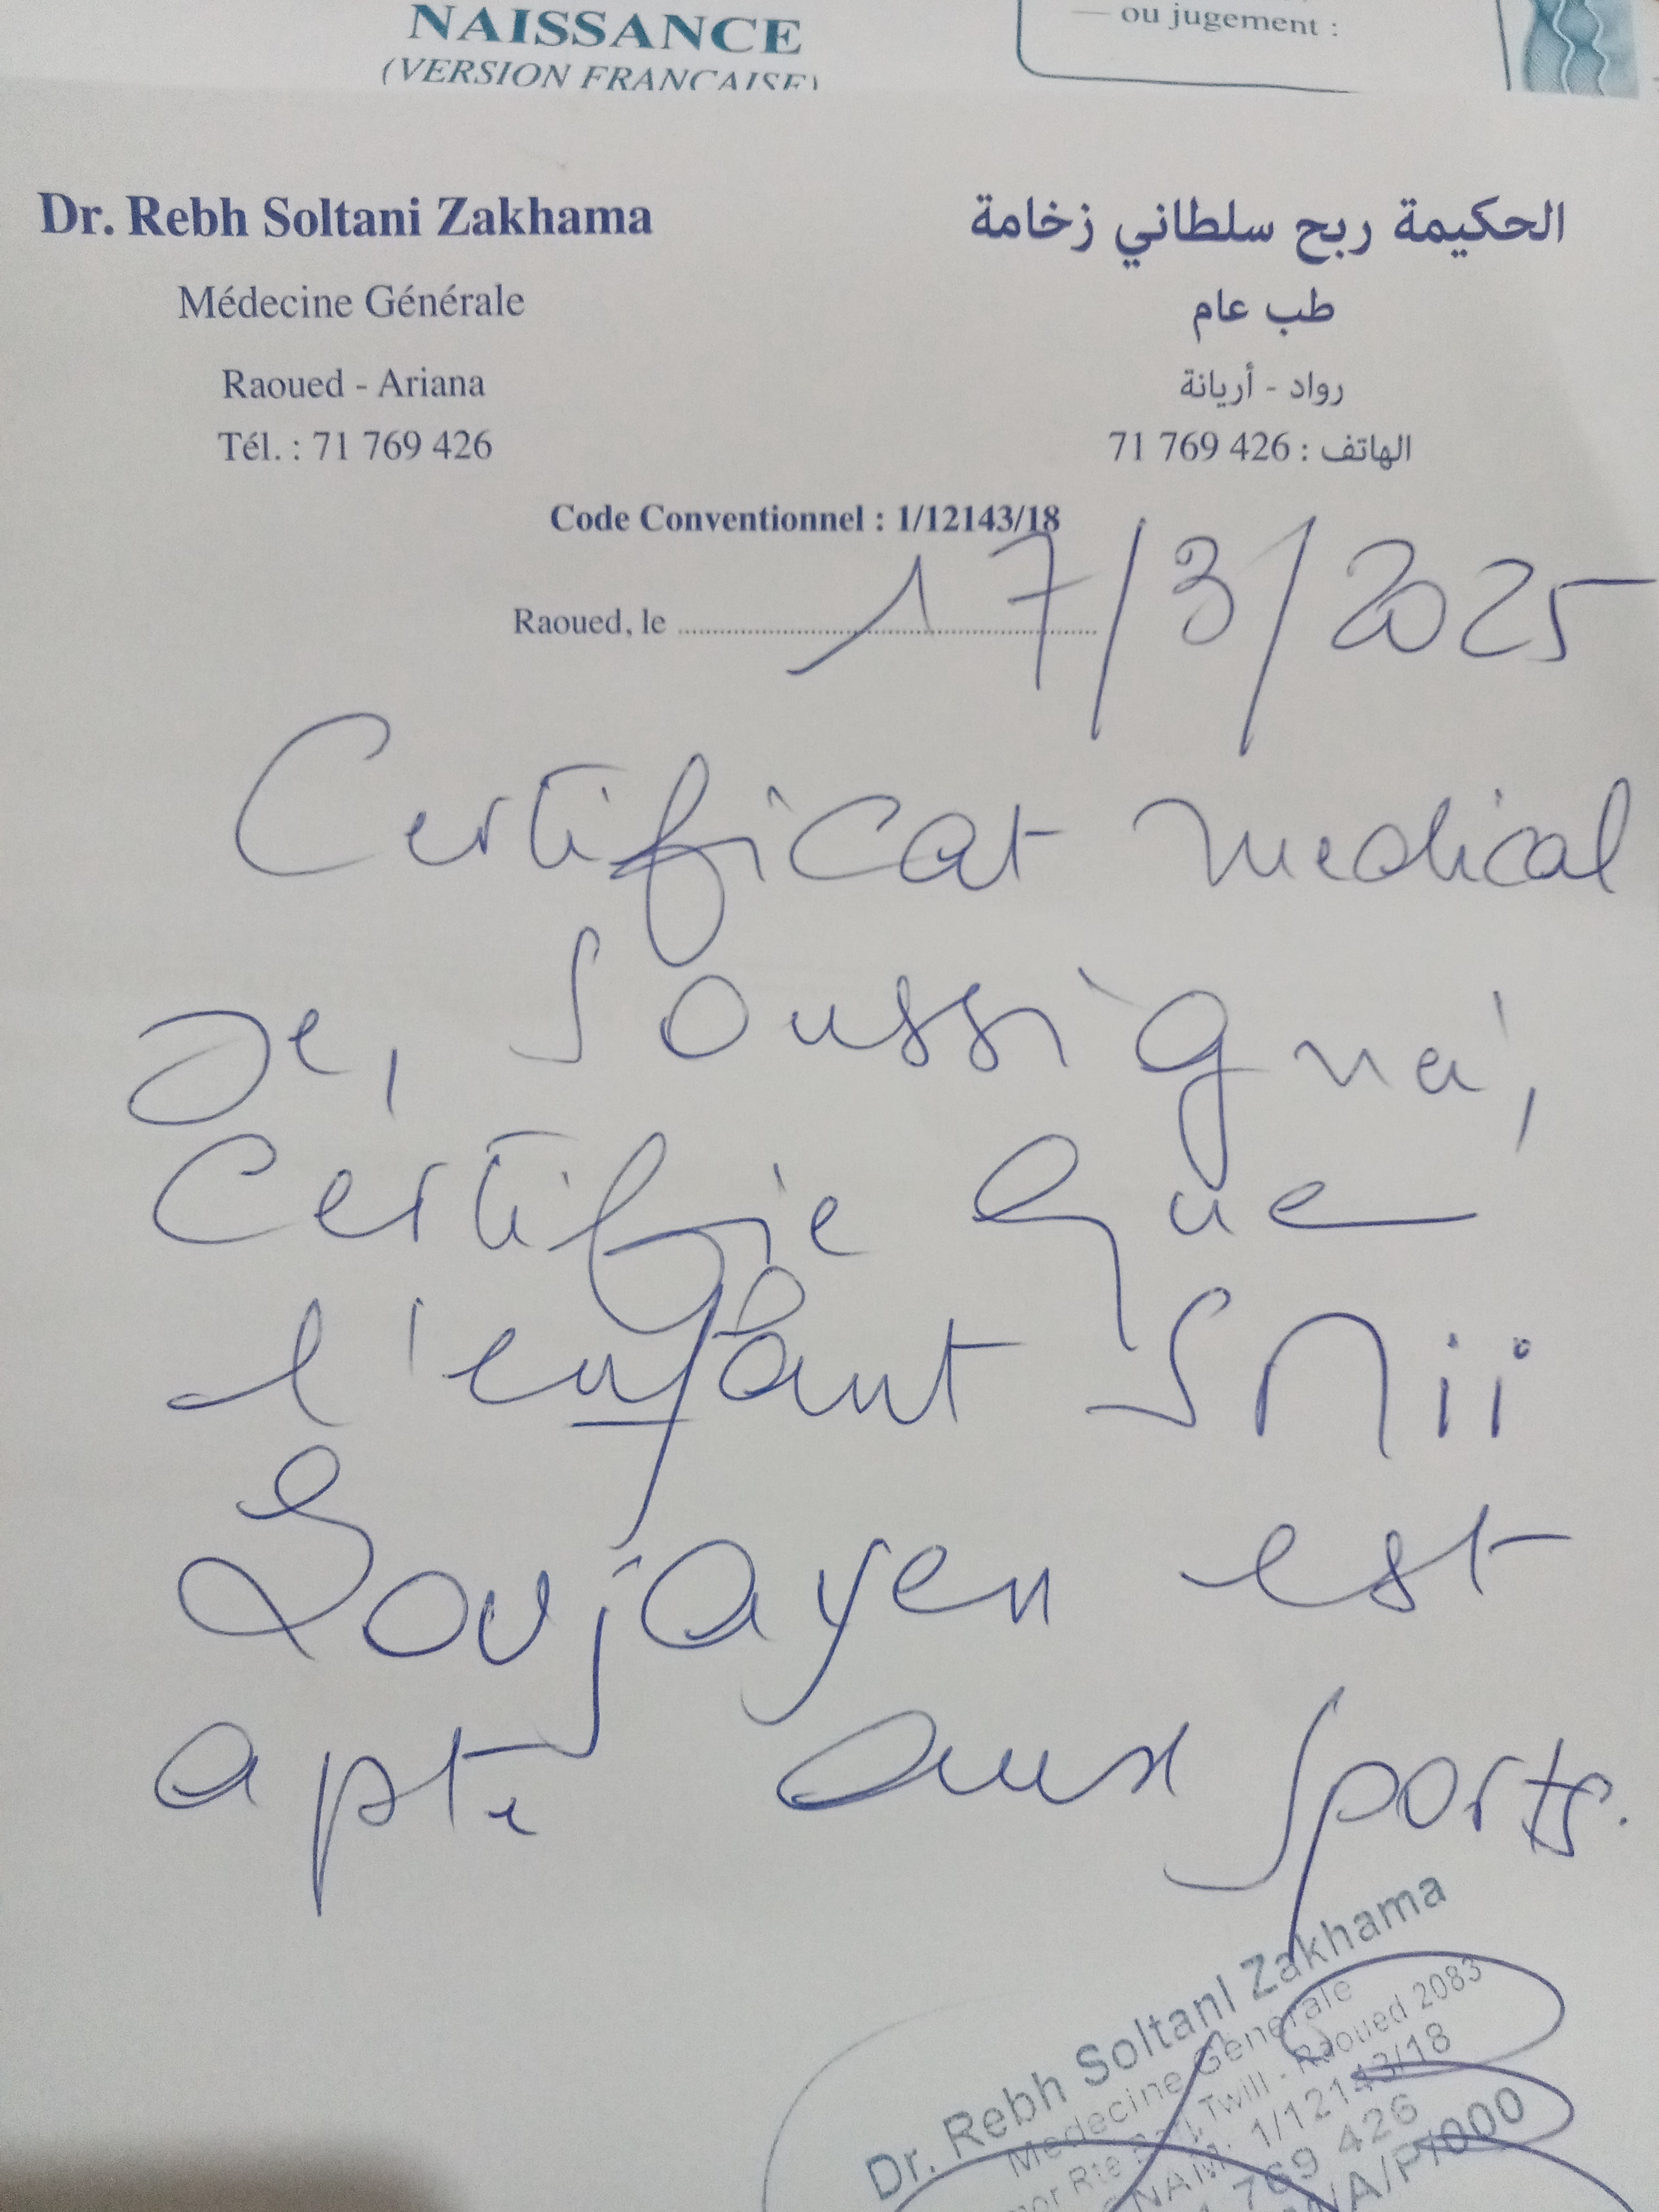 NAISSANCE
(VERSION FRANCAISE)
— ou jugement :
Dr. Rebh Soltani Zakhama
Médecine Générale
Raoued - Ariana
Tél. : 71 769 426
الحكيمة ربح سلطاني زخامة
طب عام
رواد - أريانة
الهاتف : 426 769 71
Code Conventionnel : 1/12143/18
Raoued, le 17/3/2025
Certificat medical
Je, Soussigné,
Certifie que
l'enfant Snii
Loujayen est
apte aux sports.
Dr. Rebh Soltani Zakhama
Médecine Générale
Rte Twill - Raoued 2083
1/12143/18
769 426
/A/P/000